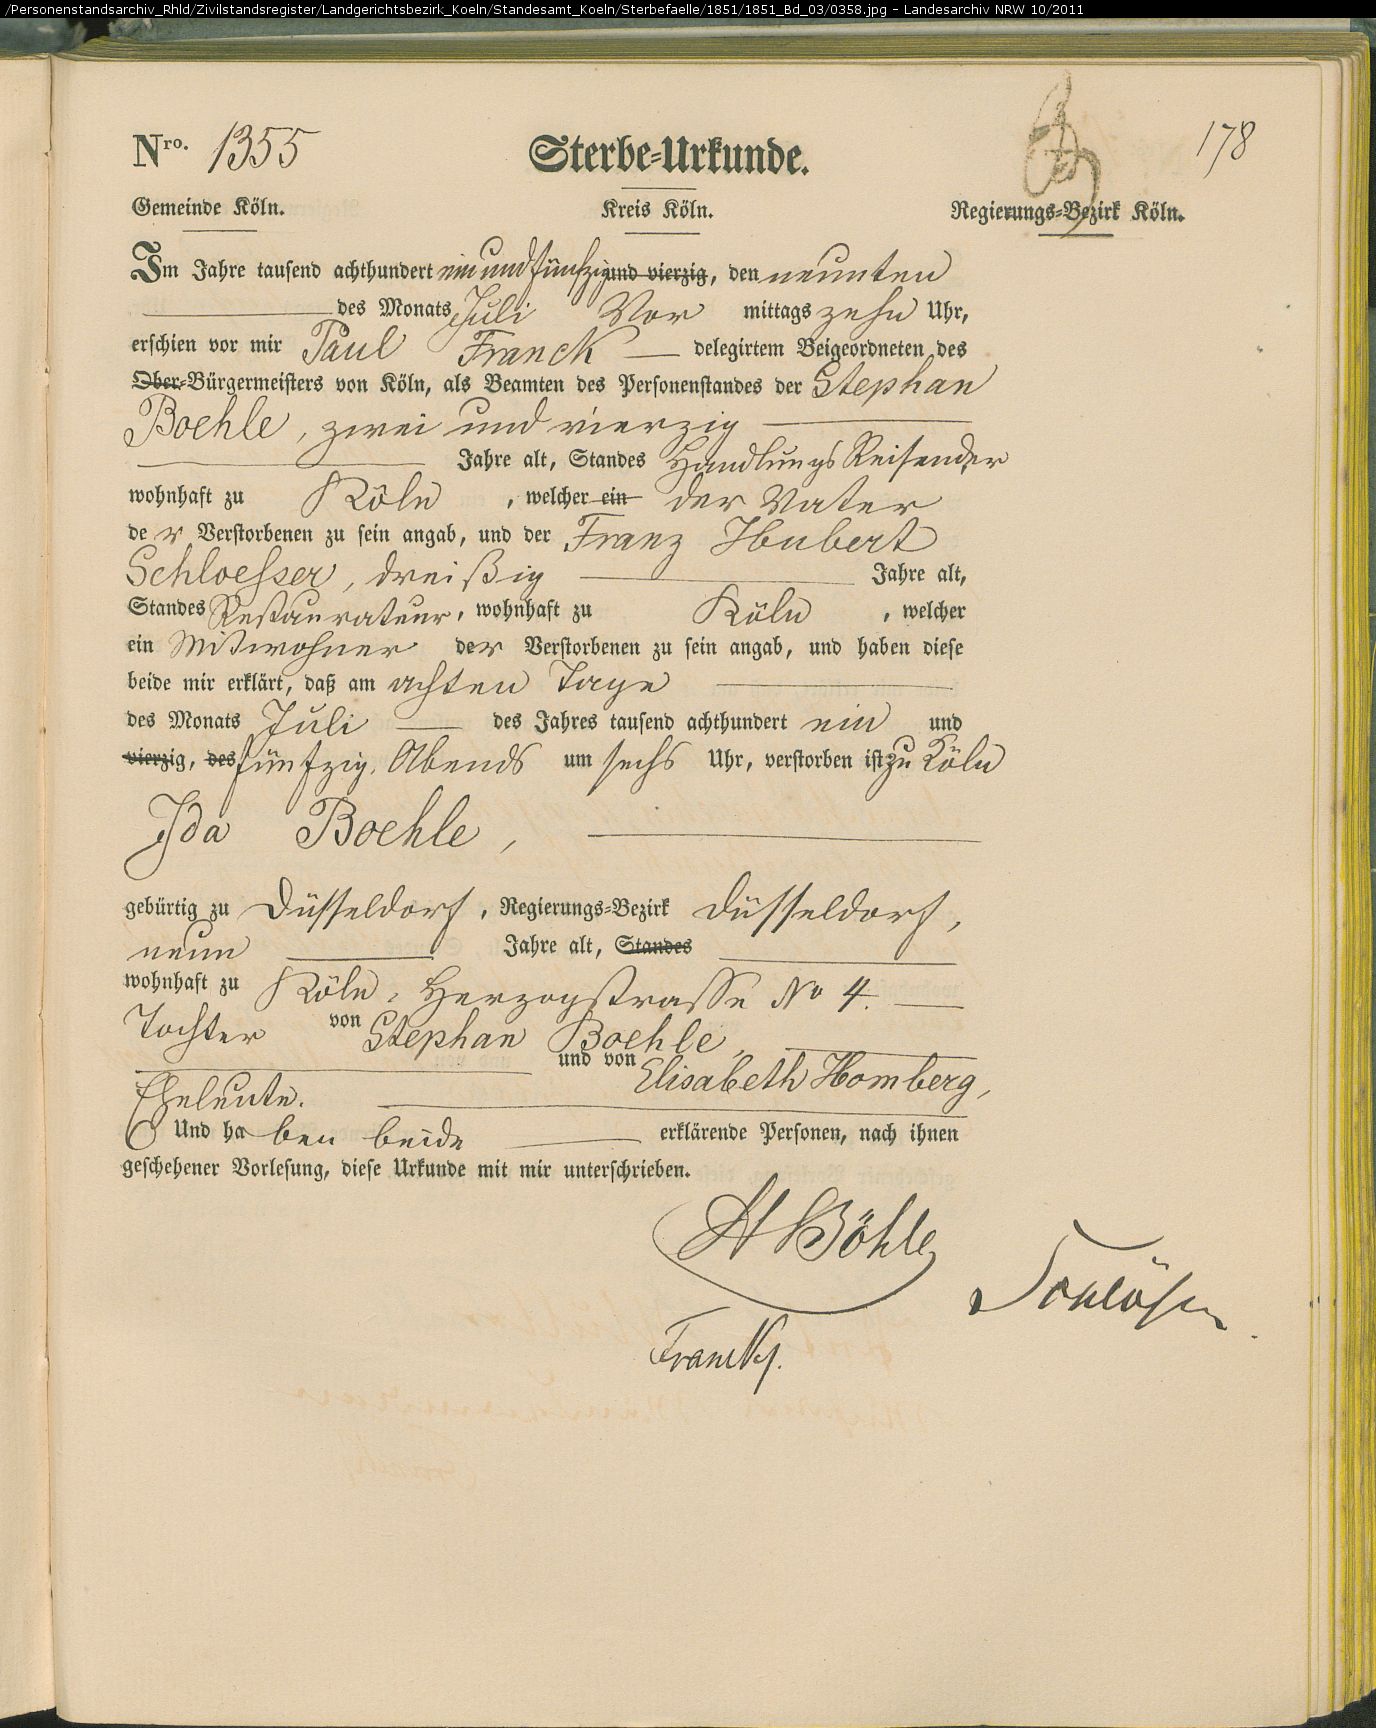 /Personenstandsarchiv_Rhld/Zivilstandsregister/Landgerichtsbezirk_Koeln/Standesamt_Koeln/Sterbefaelle/1851/1851_Bd_03/0358.jpg - Landesarchiv NRW 10/2011
178
Nro. 1355 Sterbe-Urkunde.
Gemeinde Köln. Kreis Köln. Regierungs-Bezirk Köln.
Im Jahre tausend achthundert ein und fünfzig und vierzig, den neunten
des Monats Juli Vor mittags zehn Uhr,
erschien vor mir Paul Franck delegirtem Beigeordneten des
Ober-Bürgermeisters von Köln, als Beamten des Personenstandes der Stephan
Boehle, zwei und vierzig
Jahre alt, Standes Handlungs Reisender
wohnhaft zu Köln, welcher ein der Vater
der Verstorbenen zu sein angab, und der Franz Hubert
Schloesser, dreißig Jahre alt,
Standes Restaurateur, wohnhaft zu Köln, welcher
ein Mitwohner der Verstorbenen zu sein angab, und haben diese
beide mir erklärt, daß am achten Tage
des Monats Juli des Jahres tausend achthundert ein und
vierzig, des fünfzig, Abends um sechs Uhr, verstorben ist zu Köln
Ida Boehle,
gebürtig zu Düsseldorf, Regierungs-Bezirk Düsseldorf,
neun Jahre alt, Standes
wohnhaft zu Köln, Herzogstrasse No 4.
Tochter von Stephan Boehle,
und von Elisabeth Homberg,
Eheleute.
Und haben beide erklärende Personen, nach ihnen
geschehener Vorlesung, diese Urkunde mit mir unterschrieben.
St Böhle
Schlösser
Franck